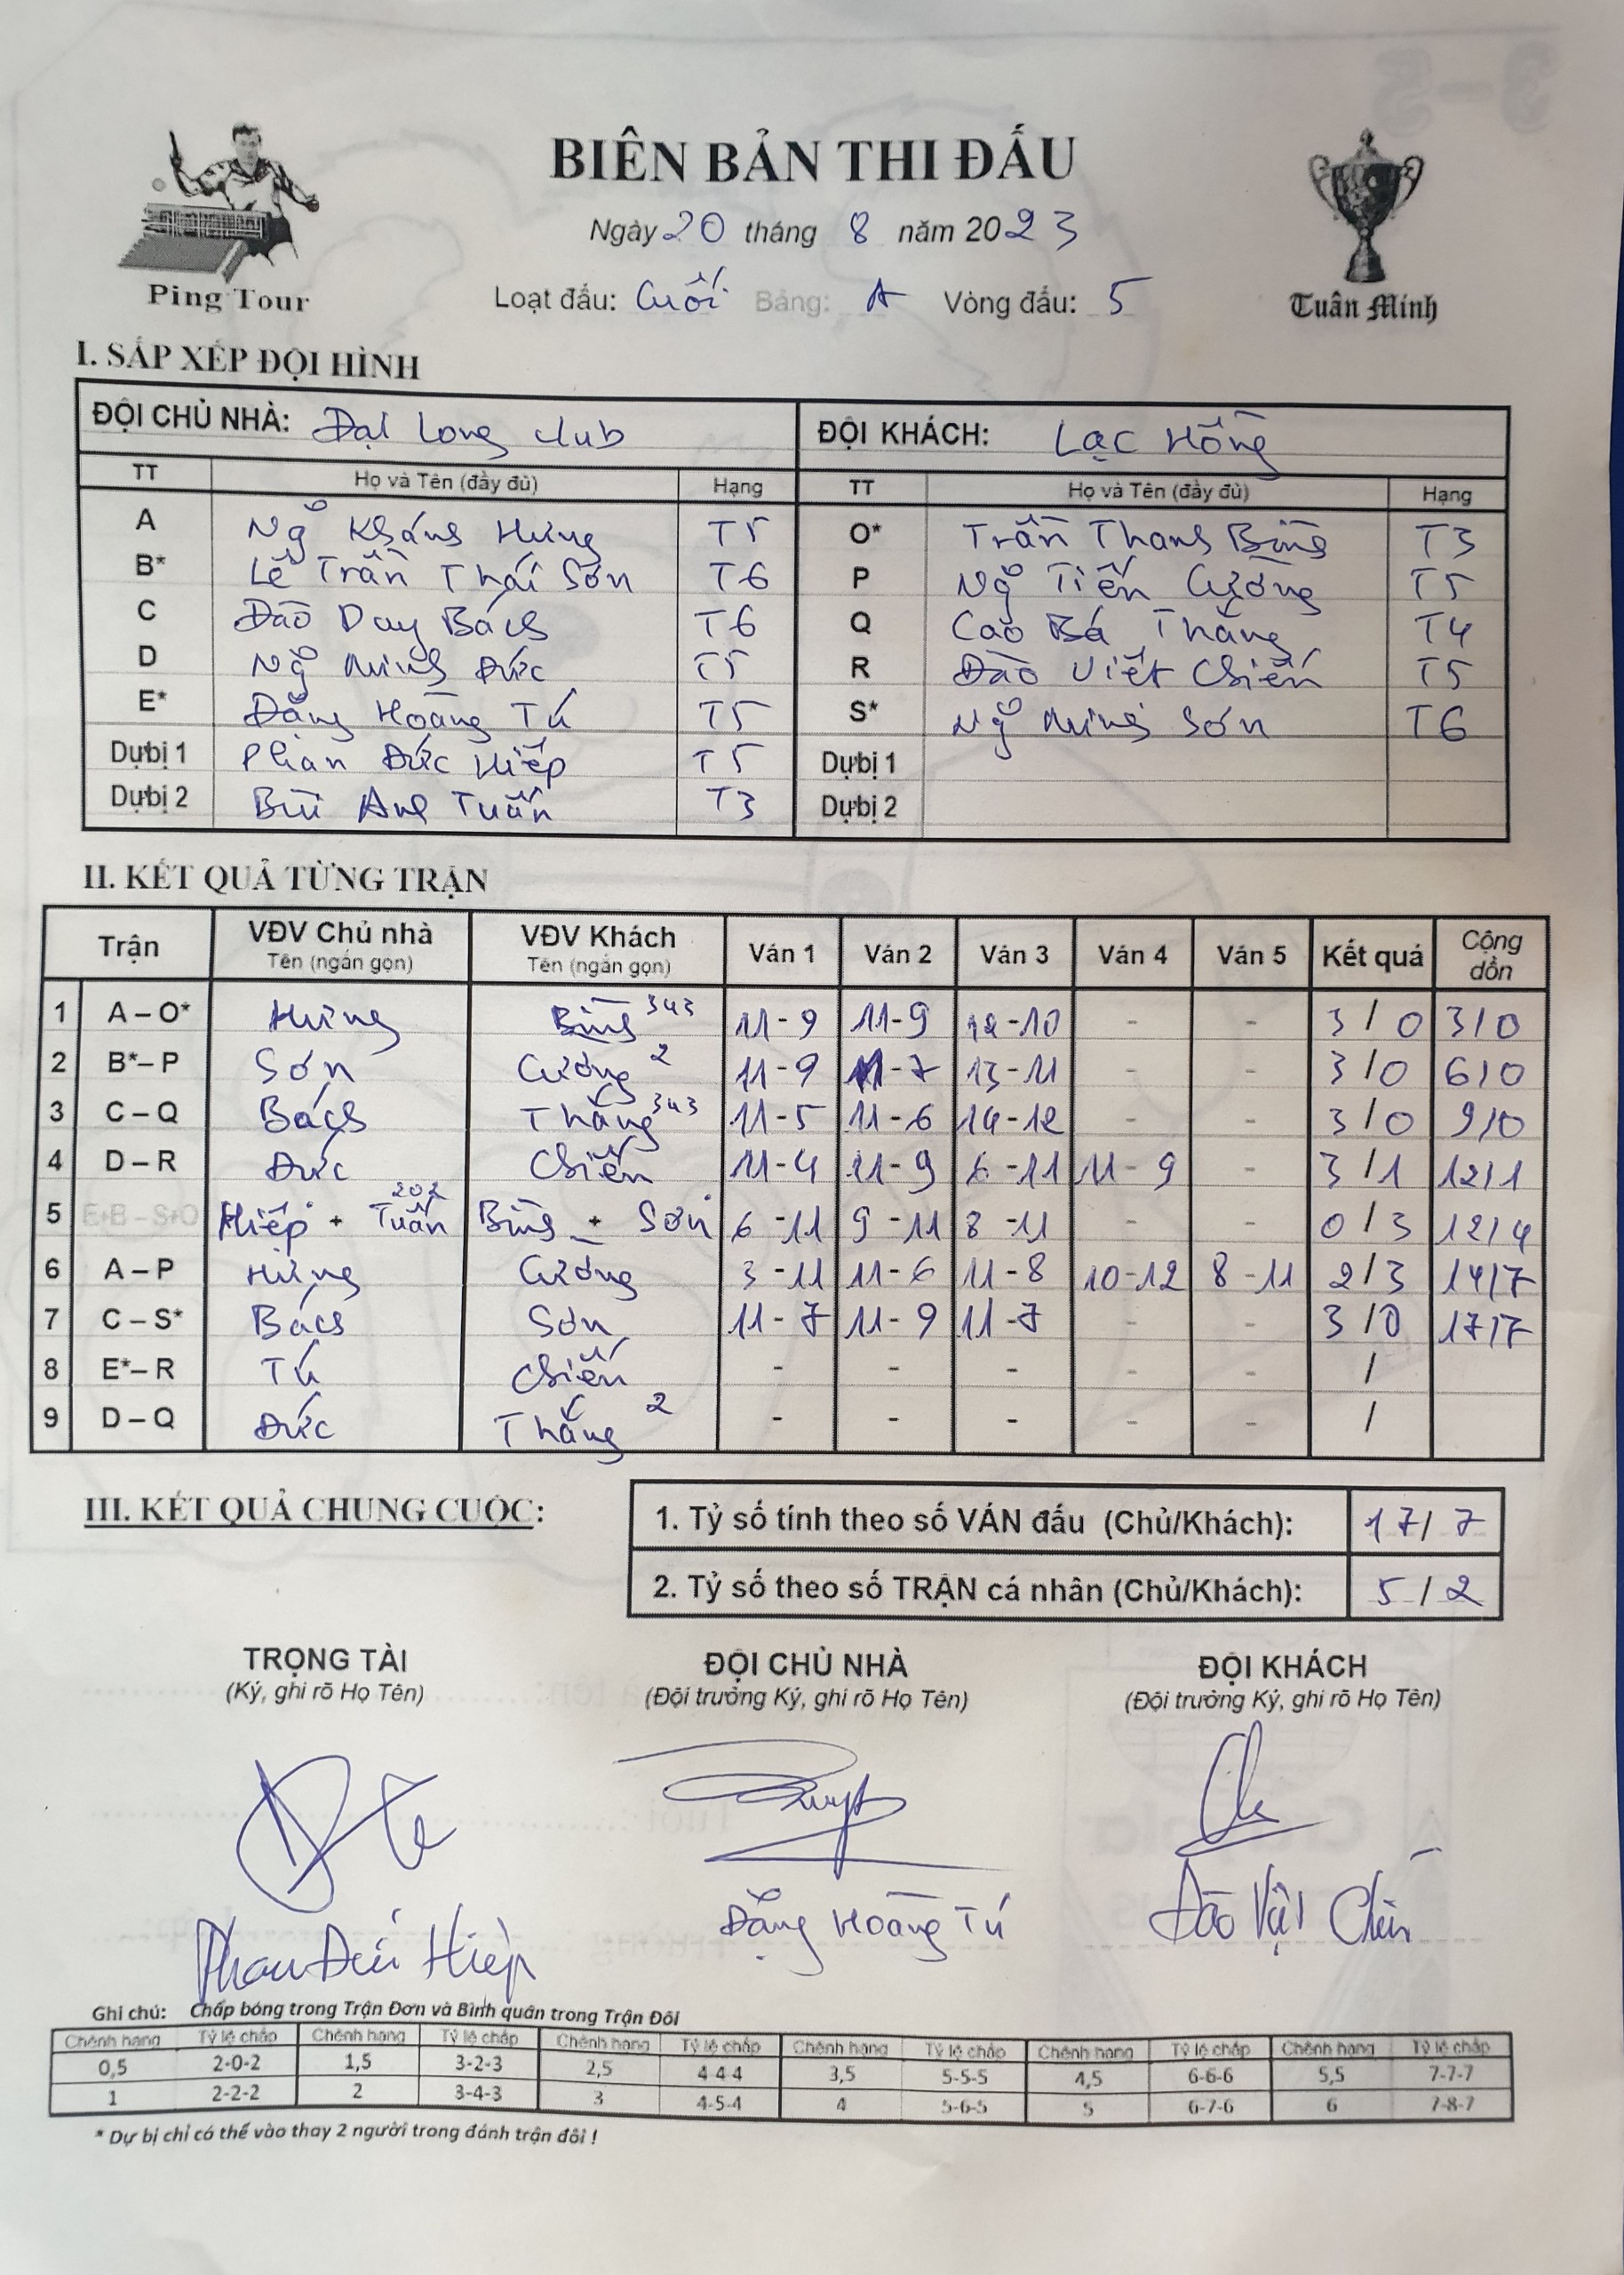 BIÊN BẢN THI ĐẤU
Ngày 20 tháng 8 năm 2023
Ping Tour
Loạt đấu: Cuối Bảng: A Vòng đấu: 5
Tuấn Minh
I. SẮP XẾP ĐỘI HÌNH
ĐỘI CHỦ NHÀ: Đại Long club ĐỘI KHÁCH: Lạc Hồng
TT Họ và Tên (đầy đủ) Hạng TT Họ và Tên (đầy đủ) Hạng
A Ng̃ Khánh Hưng T5 O* Trần Thanh Bình T3
B* Lê Trần Thái Sơn T6 P Ng̃ Tiến Cường T5
C Đào Duy Bách T6 Q Cao Bá Thắng T4
D Ng̃ Minh Đức T5 R Đào Viết Chiến T5
E* Đặng Hoàng Tú T5 S* Ng̃ Minh Sơn T6
Dự bị 1 Phan Đức Hiếp T5 Dự bị 1
Dự bị 2 Bùi Anh Tuấn T3 Dự bị 2
II. KẾT QUẢ TỪNG TRẬN
Trận VĐV Chủ nhà Tên (ngắn gọn) VĐV Khách Tên (ngắn gọn) Ván 1 Ván 2 Ván 3 Ván 4 Ván 5 Kết quả Cộng dồn
1 A – O* Hưng Bình 343 11-9 11-9 12-10 - - 3/0 3/0
2 B* – P Sơn Cường 2 11-9 11-7 13-11 - - 3/0 6/0
3 C – Q Bách Thắng 343 11-5 11-6 14-12 - - 3/0 9/0
4 D – R Đức Chiến 11-4 11-9 6-11 11-9 - 3/1 12/1
5 E+B – S+O Hiếp + Tuấn 202 Bình + Sơn 6-11 9-11 8-11 - - 0/3 12/4
6 A – P Hưng Cường 3-11 11-6 11-8 10-12 8-11 2/3 14/7
7 C – S* Bách Sơn 11-7 11-9 11-7 - - 3/0 17/7
8 E* – R Tú Chiến - - - - - /
9 D – Q Đức Thắng 2 - - - - - /
III. KẾT QUẢ CHUNG CUỘC:
1. Tỷ số tính theo số VÁN đấu (Chủ/Khách): 17/7
2. Tỷ số theo số TRẬN cá nhân (Chủ/Khách): 5/2
TRỌNG TÀI ĐỘI CHỦ NHÀ ĐỘI KHÁCH
(Ký, ghi rõ Họ Tên) (Đội trưởng Ký, ghi rõ Họ Tên) (Đội trưởng Ký, ghi rõ Họ Tên)
Phan Đức Hiệp Đặng Hoàng Tú Đào Viết Chiến
Ghi chú: Chấp bóng trong Trận Đơn và Bình quân trong Trận Đôi
Chênh hạng Tỷ lệ chấp Chênh hạng Tỷ lệ chấp Chênh hạng Tỷ lệ chấp Chênh hạng Tỷ lệ chấp Chênh hạng Tỷ lệ chấp Chênh hạng Tỷ lệ chấp
0,5 2-0-2 1,5 3-2-3 2,5 4-4-4 3,5 5-5-5 4,5 6-6-6 5,5 7-7-7
1 2-2-2 2 3-4-3 3 4-5-4 4 5-6-5 5 6-7-6 6 7-8-7
* Dự bị chỉ có thể vào thay 2 người trong đánh trận đôi !